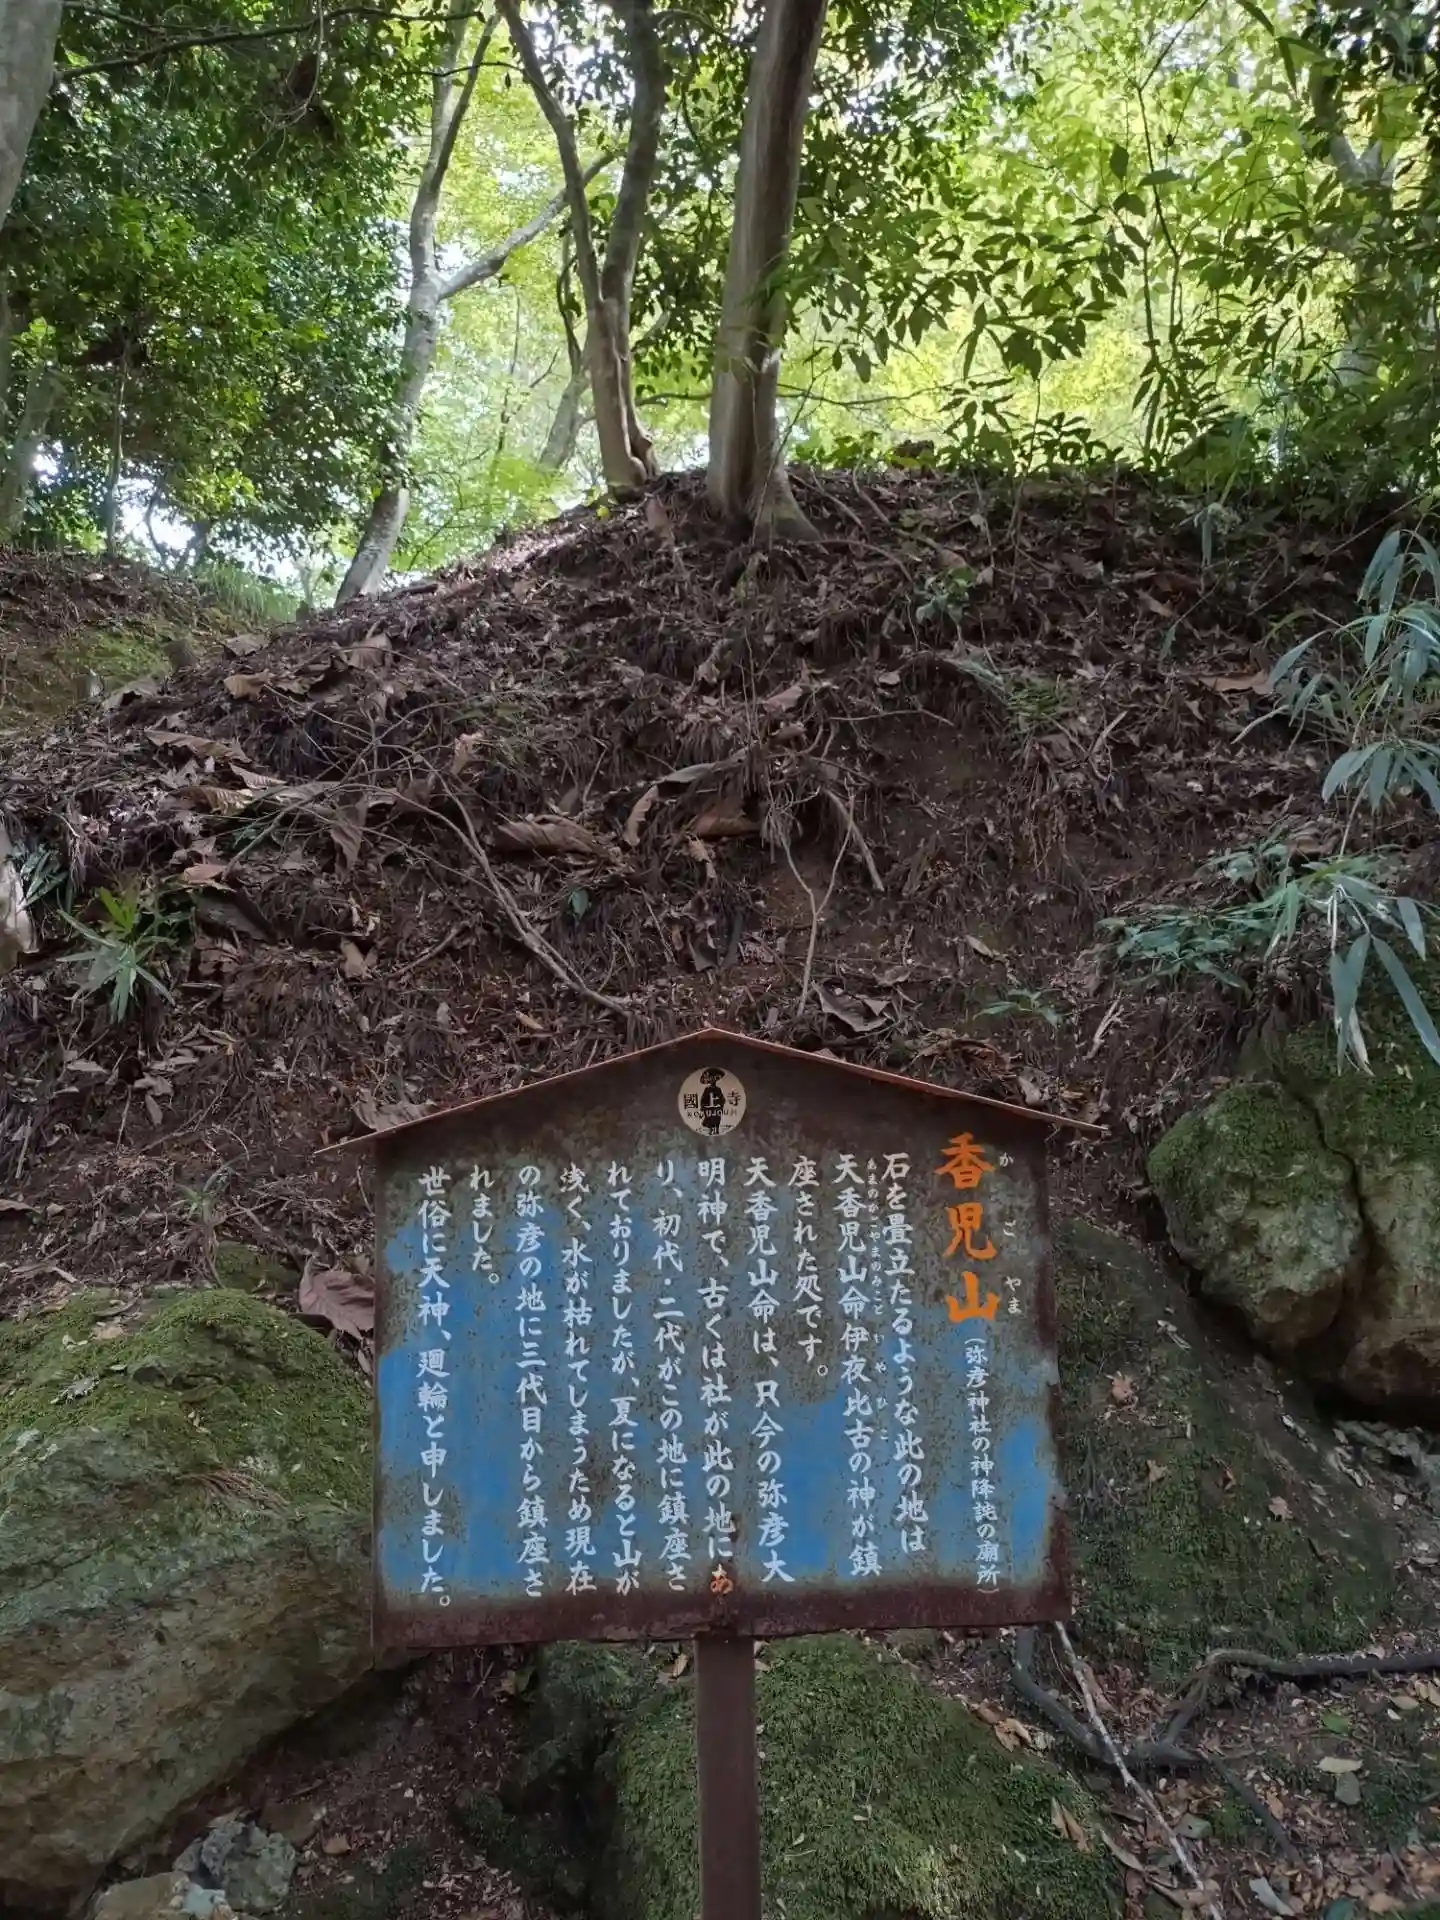 國上寺
KOKUJOUJI
香児山
かごやま
(弥彦神社の神降詫の廟所)
石を畳立たるような此の地は
天香児山命伊夜比古の神が鎮
あまのかごやまのみこといやひこ
座された処です。
天香児山命は、只今の弥彦大
明神で、古くは社が此の地にあ
り、初代・二代がこの地に鎮座さ
れておりましたが、夏になると山が
浅く、水が枯れてしまうため現在
の弥彦の地に三代目から鎮座さ
れました。
世俗に天神、廻輪と申しました。